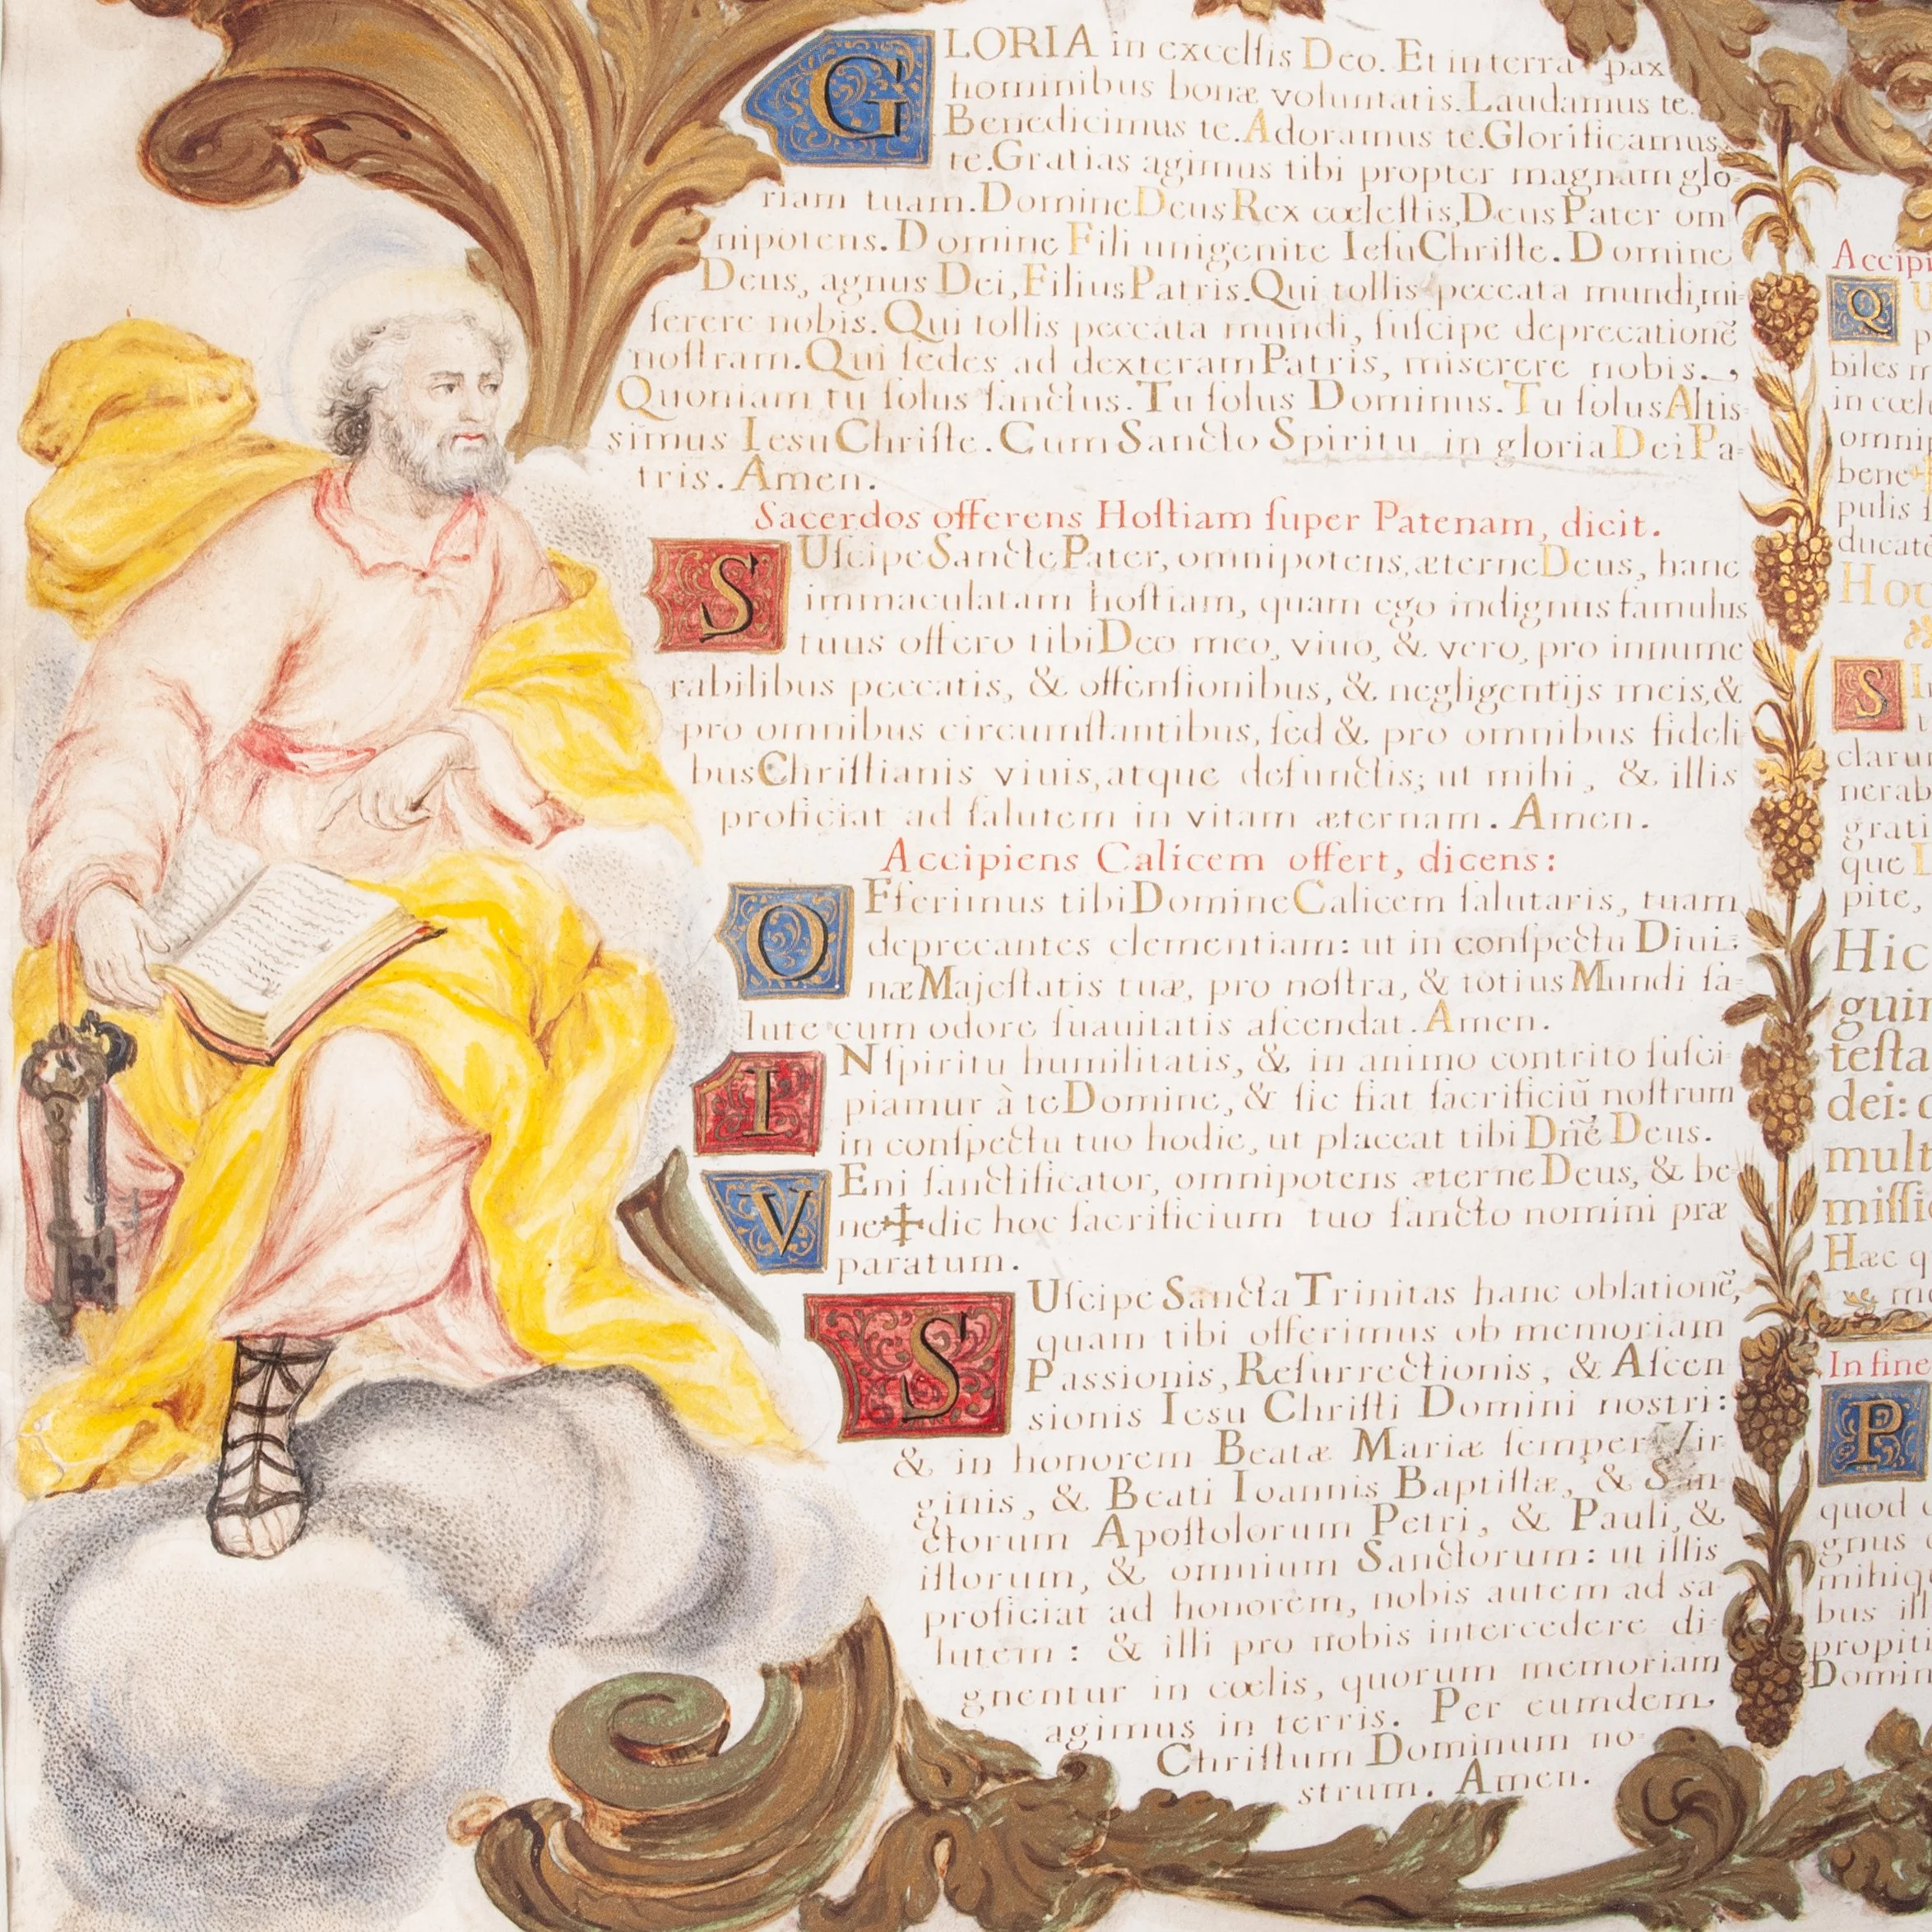 GLORIA in excelſis Deo. Et in terra pax
hominibus bonæ voluntatis. Laudamus te.
Benedicimus te. Adoramus te. Glorificamus
te. Gratias agimus tibi propter magnam glo-
riam tuam. Domine Deus Rex cœleſtis, Deus Pater om
nipotens. Domine Fili unigenite Ieſu Chriſte. Domine
Deus, agnus Dei, Filius Patris. Qui tollis peccata mundi, mi-
ſerere nobis. Qui tollis peccata mundi, ſuſcipe deprecationē
noſtram. Qui ſedes ad dexteram Patris, miserere nobis.
Quoniam tu ſolus ſanctus. Tu ſolus Dominus. Tu ſolus Altis-
simus Iesu Chriſte. Cum Sancto Spiritu in gloria Dei Pa-
tris. Amen.
Sacerdos offerens Hoſtiam ſuper Patenam, dicit.
SUſcipe Sancte Pater, omnipotens, æterne Deus, hanc
immaculatam hoſtiam, quam ego indignus famulus
tuus offero tibi Deo meo, viuo, & vero, pro innume
rabilibus peccatis, & offenſionibus, & negligentijs meis, &
pro omnibus circumſtantibus, ſed & pro omnibus fideli
bus Chriſtianis viuis, atque defunctis; ut mihi, & illis
proficiat ad ſalutem in vitam æternam. Amen.
Accipiens Calicem offert, dicens:
OFferimus tibi Domine Calicem ſalutaris, tuam
deprecantes clementiam: ut in conſpectu Diui-
næ Majeſtatis tuæ, pro noſtra, & totius Mundi ſa-
lute cum odore ſuauitatis aſcendat. Amen.
IN ſpiritu humilitatis, & in animo contrito ſuſci-
piamur à te Domine, & ſic fiat ſacrificiū noſtrum
in conſpectu tuo hodie, ut placeat tibi Dn̄e Deus.
VEni ſanctificator, omnipotens æterne Deus, & be
ne✠dic hoc ſacrificium tuo ſancto nomini præ
paratum.
SUſcipe Sancta Trinitas hanc oblationē,
quam tibi offerimus ob memoriam
Passionis, Reſurrectionis, & Aſcen
sionis Iesu Chriſti Domini nostri:
& in honorem Beatæ Mariæ ſemper Vir
ginis, & Beati Ioannis Baptiſtæ, & San-
ctorum Apoſtolorum Petri, & Pauli, &
iſtorum, & omnium Sanctorum: ut illis
proficiat ad honorem, nobis autem ad sa-
lutem: & illi pro nobis intercedere di-
gnentur in cœlis, quorum memoriam
agimus in terris. Per eumdem
Chriſtum Dominum no-
strum. Amen.
Q
biles
in
omni
bene
pulis
ducat
Ho
S
clarum
nerab
grati
que
pite,
Hic
guin
teſta
dei:
mult
miſſi
Hæc q
In fine
P
quod
gnus
mihiq
bus ill
propiti
Domin